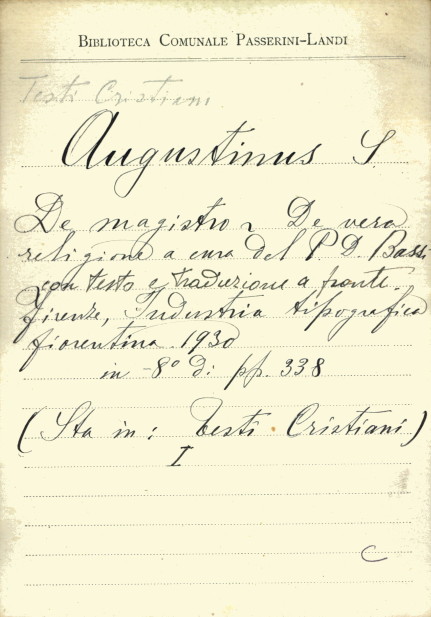 BIBLIOTECA COMUNALE PASSERINI-LANDI
Testi Cristiani
Augustinus S.
De magistro ~ De vera
religione a cura del P. D. Bassi
con testo e traduzione a fronte.
Firenze, Industria tipografica
fiorentina 1930
in -8° di pp. 338
(Sta in: Testi Cristiani)
I
C